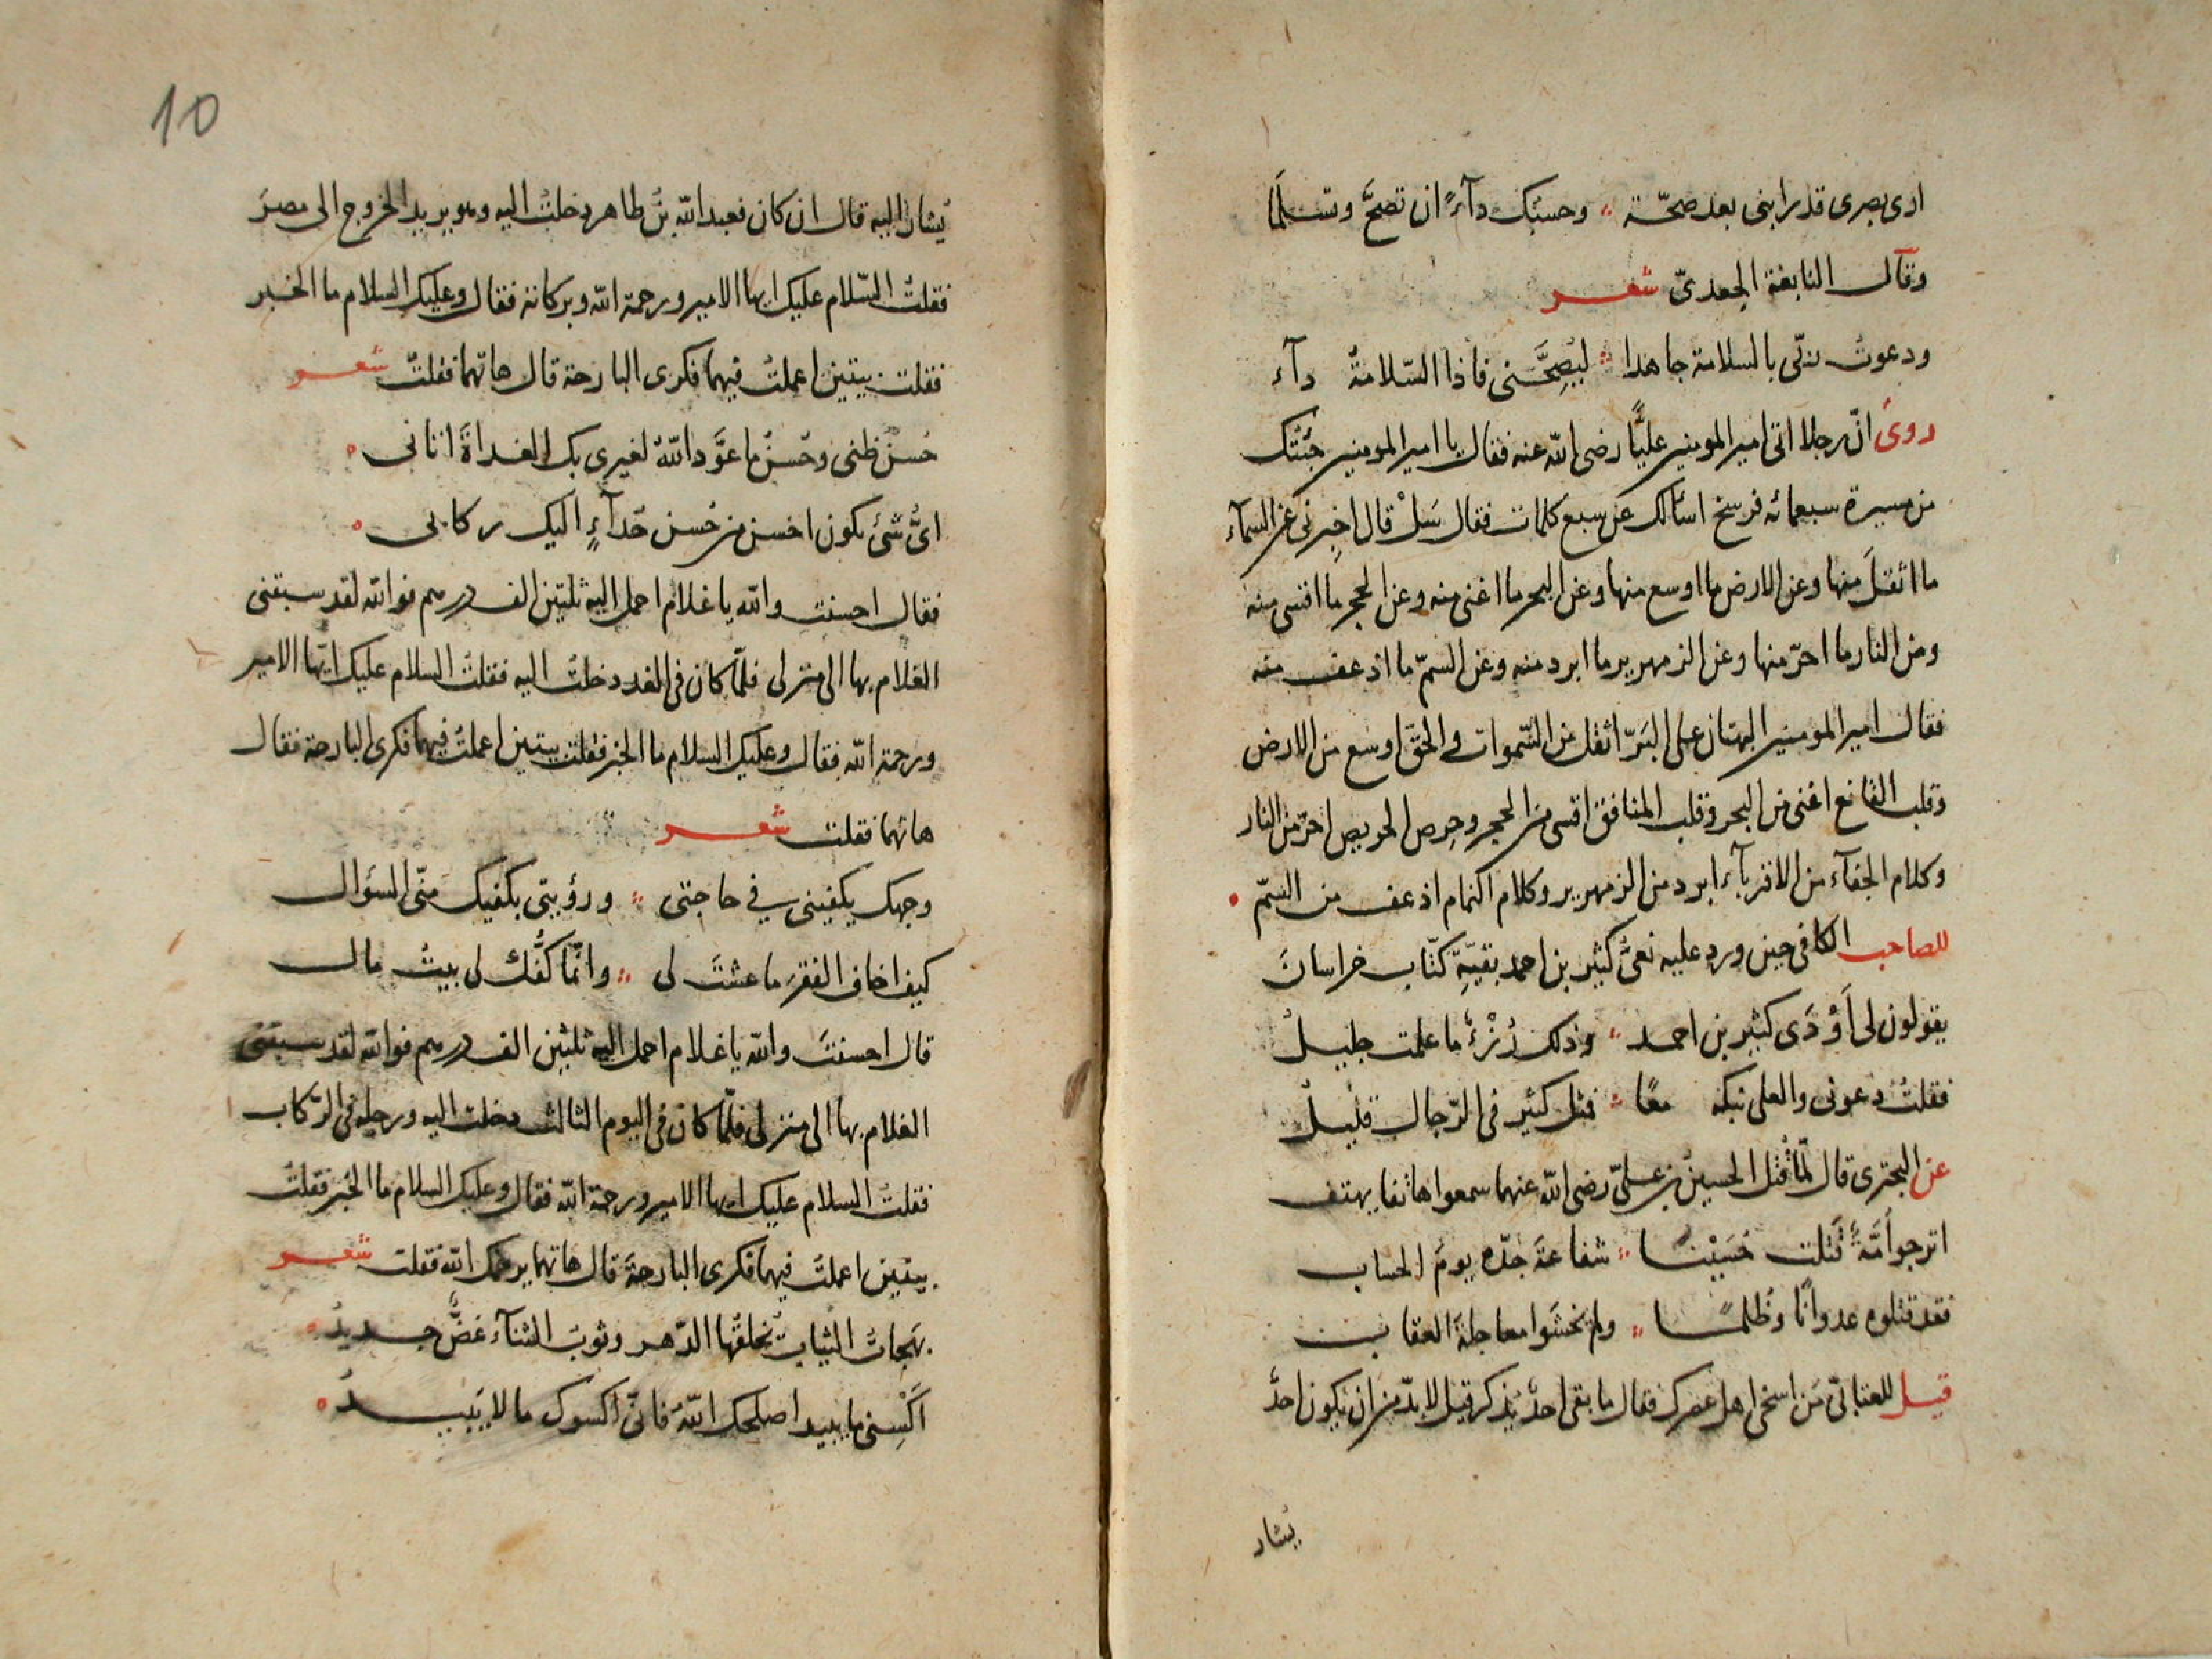 ارى بصرى قد رابنى بعد صحّة وحسبك دآءً ان تصحَّ وتسلما
وقال النابغة الجعدىّ شعر
ودعوت ربّى بالسلامة جاهدا ليُصِحَّنى فاذا السّلامةُ دآء
روى انّ رجلا اتى امير المومنير عليًّا رضى الله عنه فقال يا امير المومنير جئتك
من مسيرة سبعمائه فرسخ اسألك عن سبع كلمات فقال سَلْ قال اخبِرنى عن السمآء
ما اثقلَ منها وعن الارض ما اوسع منها وعن البحر ما اغنى منه وعن الحجر ما اقسى منه
وعن النار ما احرّ منها وعن الزمهرير ما ابرد منه وعن السمّ ما اذعف منه
فقال امير المومنير البهتان على البَرّ اثقل من السّموات والحقّ اوسع من الارض
وقلب القانع اغنى من البحر وقلب المنافق اقسى من الحجر وحِرص الحريص احرّ من النار
وكلام الجفآء من الاقربآء ابرد من الزمهرير وكلام النمام اذعف من السمّ
للصاحب الكافى حين ورد عليه نعىُّ كثير بن احمد بقيّةِ كتّاب خراسانَ
يقولون لى اَوْدَى كثير بن احمد وذلك رُزْءٌ ما علمت جليلُ
فقلتُ دعونى والعلى نبكه معًا فمثل كثير فى الرّجال قليلُ
عن البحترى قال لمّا قُتل الحسينُ بن علىّ رضى الله عنهما سمعوا هاتفا يهتف
اترجو اُمّةٌ قَتلت حُسَيْنا شفاعةَ جدّه يومَ الحساب
فقد قتلوه عدوانًا وظُلمًا ولم يخشَوا معاجلةَ العقاب
قيل للعتابىّ مَن اسخى اهل عصرك فقال ما بقى احدٌ يذكر قيل لا بدّ من ان يكون احدٌ
يُشار
10
يُشار اليه قال ان كان فعبد الله بنُ طاهر دخلتُ اليه وهو يريد الخروج الى مصرَ
فقلتُ السّلام عليك ايها الامير ورحمة الله وبركاته فقال وعليك السلام ما الخبر
فقلت بيتين اعملتُ فيهما فكرى البارحة قال هاتهما فقلتُ شعر
حُسنُ ظنى وحُسنُ ما عوَّد اللهُ لغيرى بك الغداةَ اتانى
اىُّ شئ يكون احسن من حُسن حَدآءٍ اليك ركابى
فقال احسنت والله يا غلام احمل اليه ثلثين الف درهم فوالله لقد سبقنى
الغلام بها الى منزلى فلمّا كان فى الغد دخلتُ اليه فقلتُ السلام عليك ايّها الامير
ورحمة الله فقال وعليك السلام ما الخبر فقلت بيتين اعملتُ فيهما فكرى البارحة فقال
هاتهما فقلت شعر
وجهك يكفينى فى حاجتى ورؤيتى يكفيك منّى السؤال
كيف اخاف الفقرَ ما عشتَ لى وانّما كفُّك لى بيتُ مال
قال احسنتَ والله يا غلام احمل اليه ثلثين الف درهم فوالله لقد سبقنى
الغلام بها الى منزلى فلمّا كان فى اليوم الثالث دخلت اليه ورجله فى الرّكاب
فقلتُ السلام عليك ايها الامير ورحمة الله فقال وعليك السلام ما الخبر فقلتُ
بيتين اعملتُ فيهما فكرى البارحةَ قال هاتهما يرحمك الله فقلت شعر
بَهجاتُ الثياب تُخلقُها الدّهر وثوبُ الثنآء غضٌّ جديدُ
اَكْسِنى ما يبيد اصلحك اللهُ فانّى اكسوك ما لا يَبيدُ